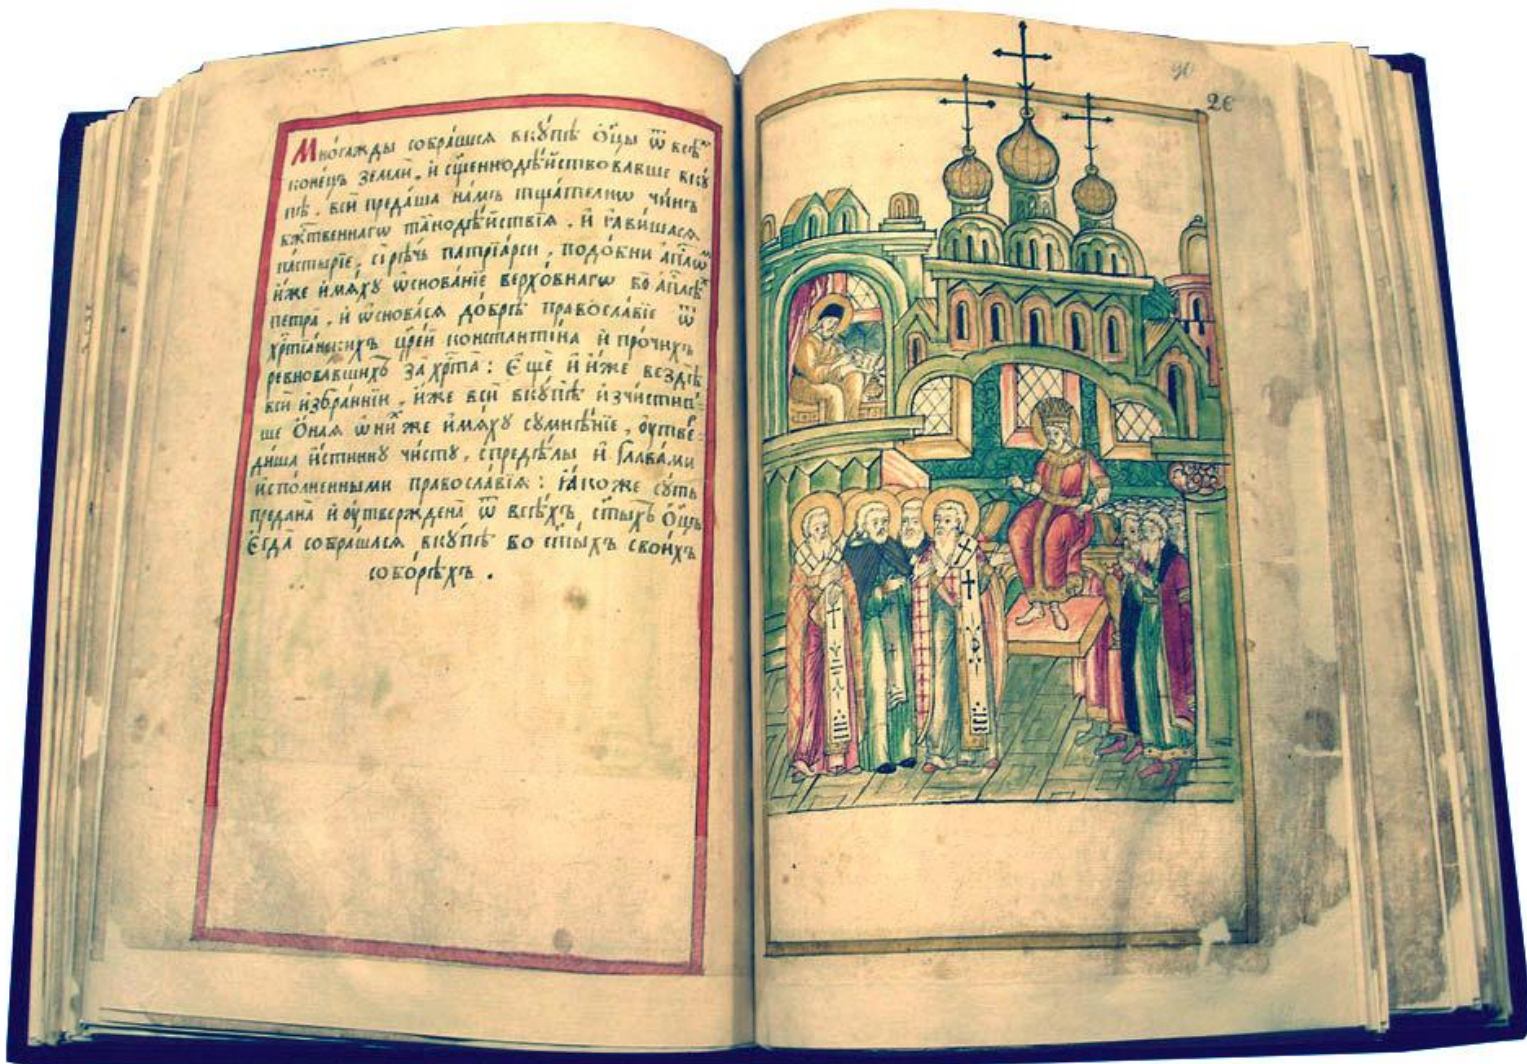 Мно́гажды собра́шася вкꙋ́пѣ ѻ҆ц҃ы ѿ всѣ́хъ
коне́цъ земли́, и҆ сщ҃еннодѣ́йствовавше вкꙋ́
пѣ, всѝ преда́ша на́мъ тща́телнѡ чи́нъ
бж҃твеннагѡ та́нодѣ́йствїѧ, и҆ ꙗ҆ви́шасѧ
па́стырїе, си́рѣчь патрїа́рси, подо́бни а҆пⷭ҇лѡⷨ
и҆́же и҆мѧ́хꙋ ѡ҆снова́нїе верхо́внагѡ во а҆пⷭ҇лѣⷯ
петра̀, и҆ ѡ҆снова́сѧ до́брѣ правосла́вїе ѿ
хрⷭ҇тїа́нскихъ цр҃е́й константі́на и҆ про́чихъ
ревнова́вшихъ за хрⷭ҇та̀: Е҆щѐ и҆ и҆́же вездѣ̀
всѝ и҆збра́ннїи, и҆́же всѝ вкꙋ́пѣ и҆зчи́стив
ше ѻ҆́наѧ ѡ҆ ни́хже и҆мѧ́хꙋ сꙋмнѣ́нїе, ᲂу҆тве
диша и҆́стиннꙋ чи́стꙋ, спредѣ́лы и҆ гла́вами
и҆спо́лненными правосла́вїѧ: ꙗ҆́коже сꙋ́ть
пре́дана и҆ ᲂу҆твержде́на ѿ всѣ́хъ ст҃ы́хъ ѻ҆ц҃ъ
Е҆гда̀ собра́шасѧ вкꙋ́пѣ во ст҃ы́хъ свои́хъ
собо́рѣхъ.
90
26